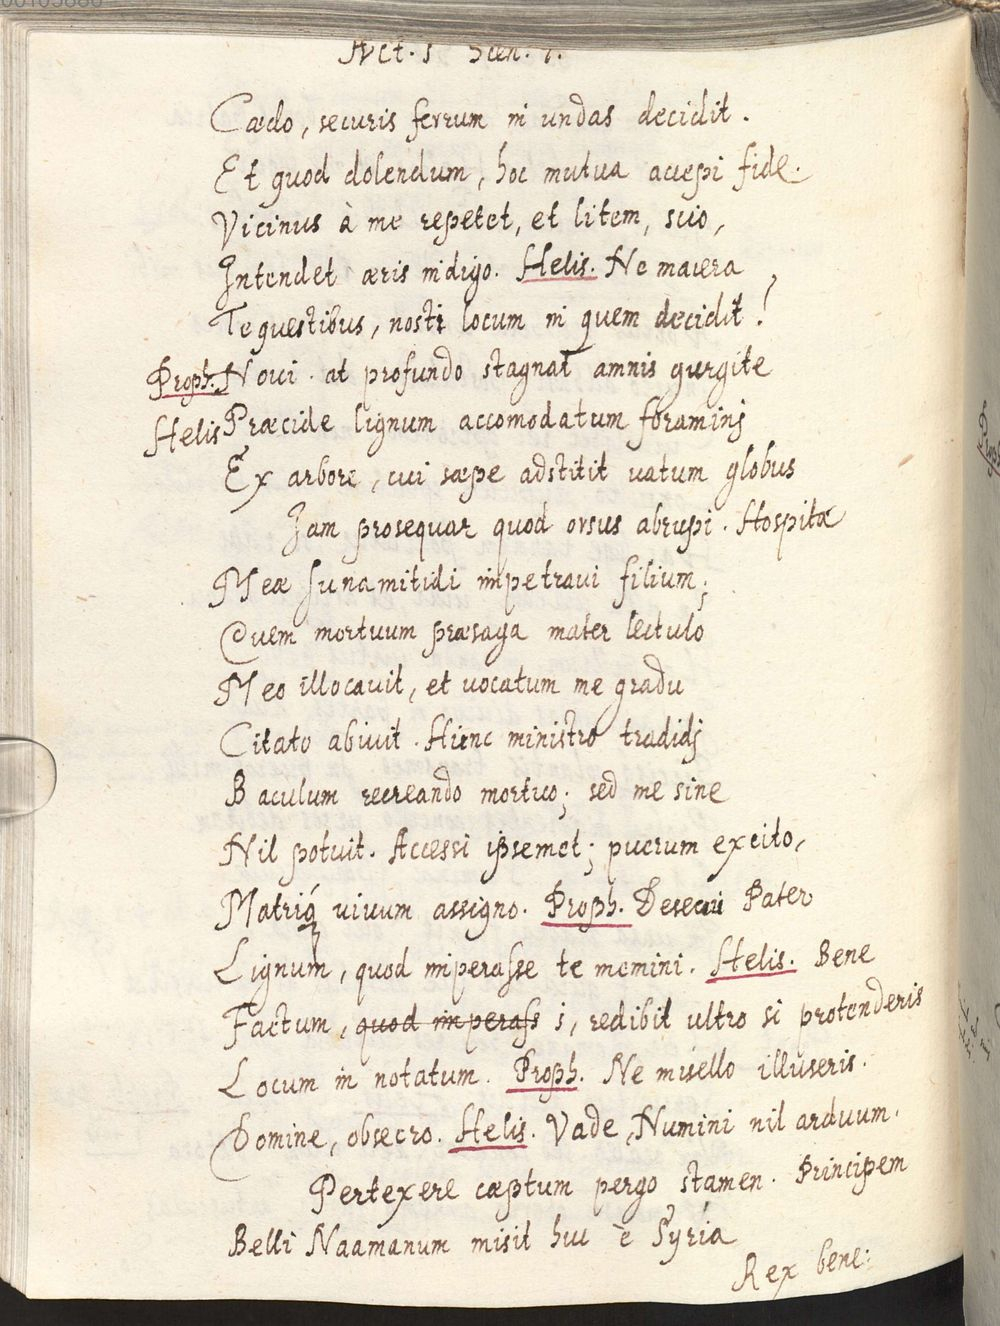 Act. 5 Scen. 7.
Cædo, securis ferrum in undas decidit.
Et quod dolendum, hoc mutua accepi fide.
Vicinus à me repetet, et litem, scio,
Intendet æris indigo. Helis. Ne macera
Te questibus, nosti locum in quem decidit?
Proph. Novi. at profundo stagnat amnis gurgite
Helis Præcide lignum accomodatum foraminj
Ex arbore, cui sæpe adstitit vatum globus
Jam prosequar quod orsus abrupi. Hospitæ
Meæ Sunamitidi impetravi filium;
Quem mortuum præsaga mater lectulo
Meo illocavit, et vocatum me gradu
Citato abivit. Hinc ministro tradidj
Baculum recreando mortuo; sed me sine
Nil potuit. Accessi ipsemet; puerum excito,
Matriq vivum assigno. Proph. Desecui Pater
Lignum, quod imperasse te memini. Helis. Bene
Factum, quod imperass i, redibit ultro si protenderis
Locum in notatum. Proph. Ne misello illuseris.
Domine, obsecro. Helis. Vade, Numini nil arduum.
Pertexere cæptum pergo stamen. Principem
Belli Naamanum misit huc è Syria
Rex bene: